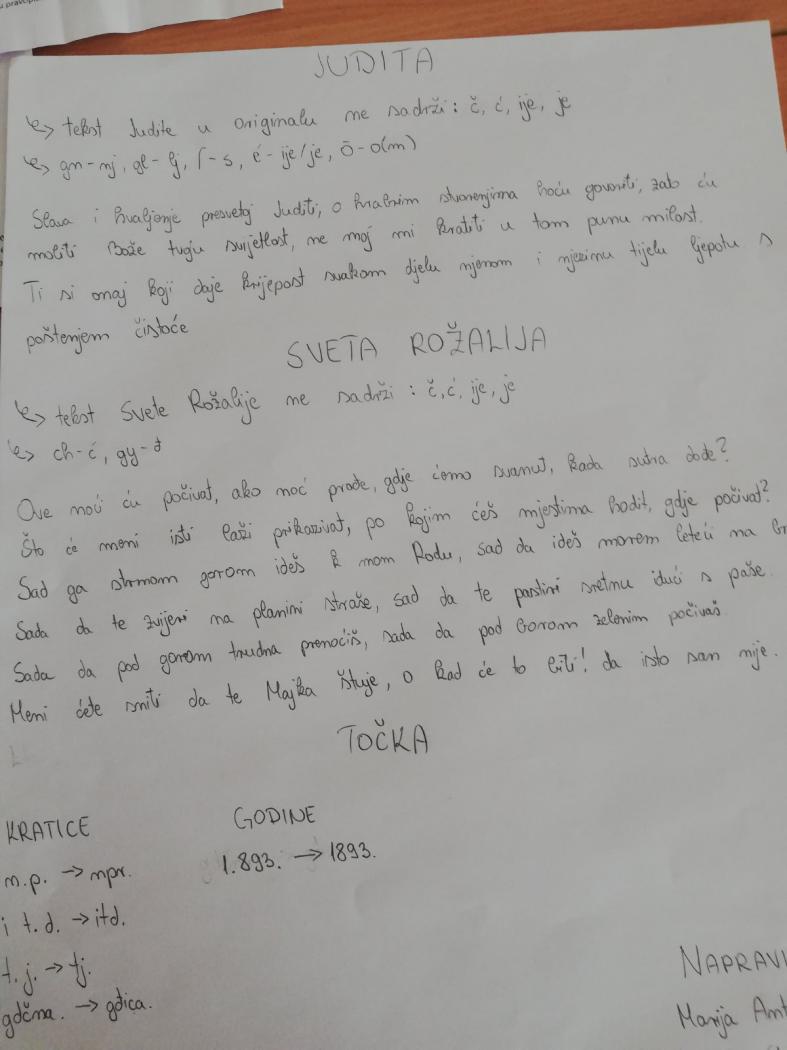 JUDITA
↳ tekst Judite u originalu ne sadrži: č, ć, ije, je
↳ gn-nj, gl-lj, ſ-s, é-ije/je, ō-o(m)
Slava i hvaljenje presvetoj Juditi, o hvalnim stvorenjima hoću govoriti, zato ću
moliti Bože tvoju svijetlost, ne moj mi kratiti u tom punu milost.
Ti si onaj koji daje krijepost svakom djelu njenom i njezinu tijelu ljepotu s
poštenjem čistoće
SVETA ROŽALIJA
↳ tekst Svete Rožalije ne sadrži: č, ć, ije, je
↳ ch-ć, gy-đ
Ove noći ću počivat, ako noć prođe, gdje ćemo svanut, kada sutra dođe?
Što će meni isti laži prikazivat, po kojim ćeš mjestima hodit, gdje počivat?
Sad ga strmom gorom ideš k mom Rodu, sad da ideš morem leteći na
Sada da te zvijeri na planini straše, sad da te pastiri sretnu idući s paše.
Sada da pod gorom trudna prenoćiš, sada da pod borom zelenim počivaš
Meni ćete sniti da te Majka štuje, o kad će to biti! da isto san nije.
TOČKA
KRATICE GODINE
n.p. → npr. 1.893. → 1893.
i t.d. → itd.
t.j. → tj.
gdčna. → gđica.
NAPRAVI
Marija Ant